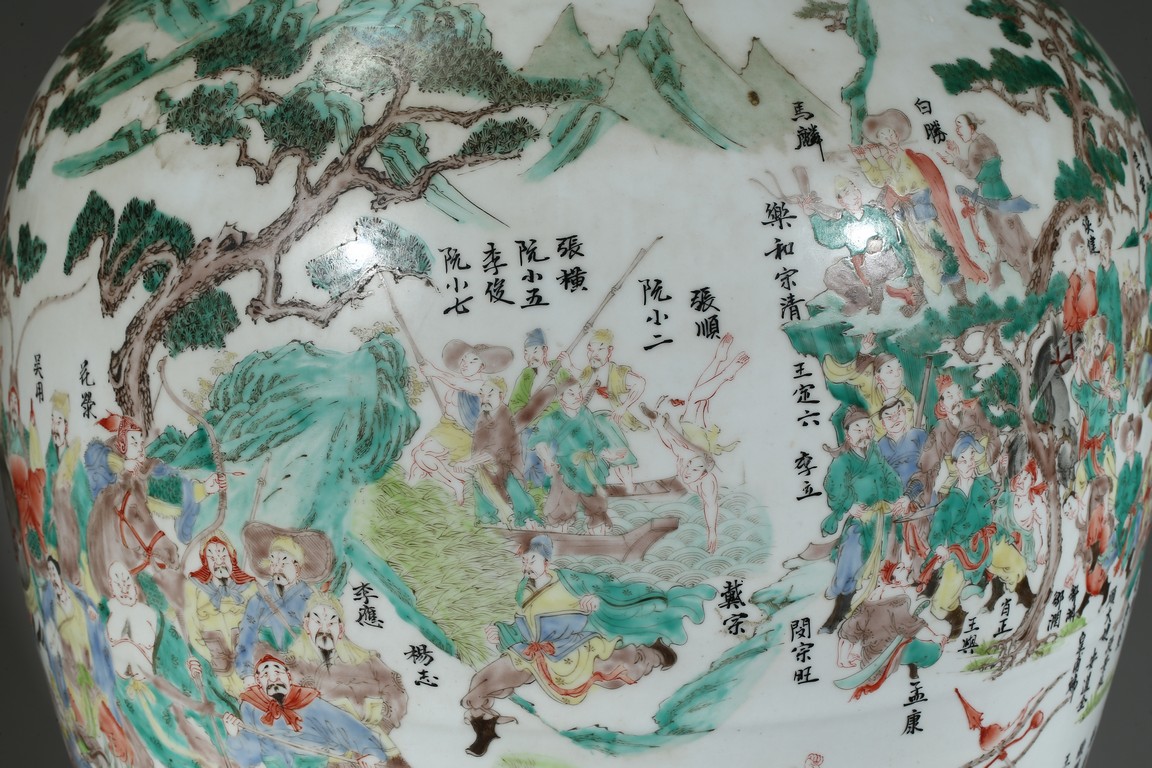 馬麟
白勝
樂和宋清
張橫
阮小五
李俊
阮小七
張順
阮小二
王定六
李立
花榮
吳用
李應
楊志
戴宗
閔宗旺
孟康
王興
肖正
鄒潤